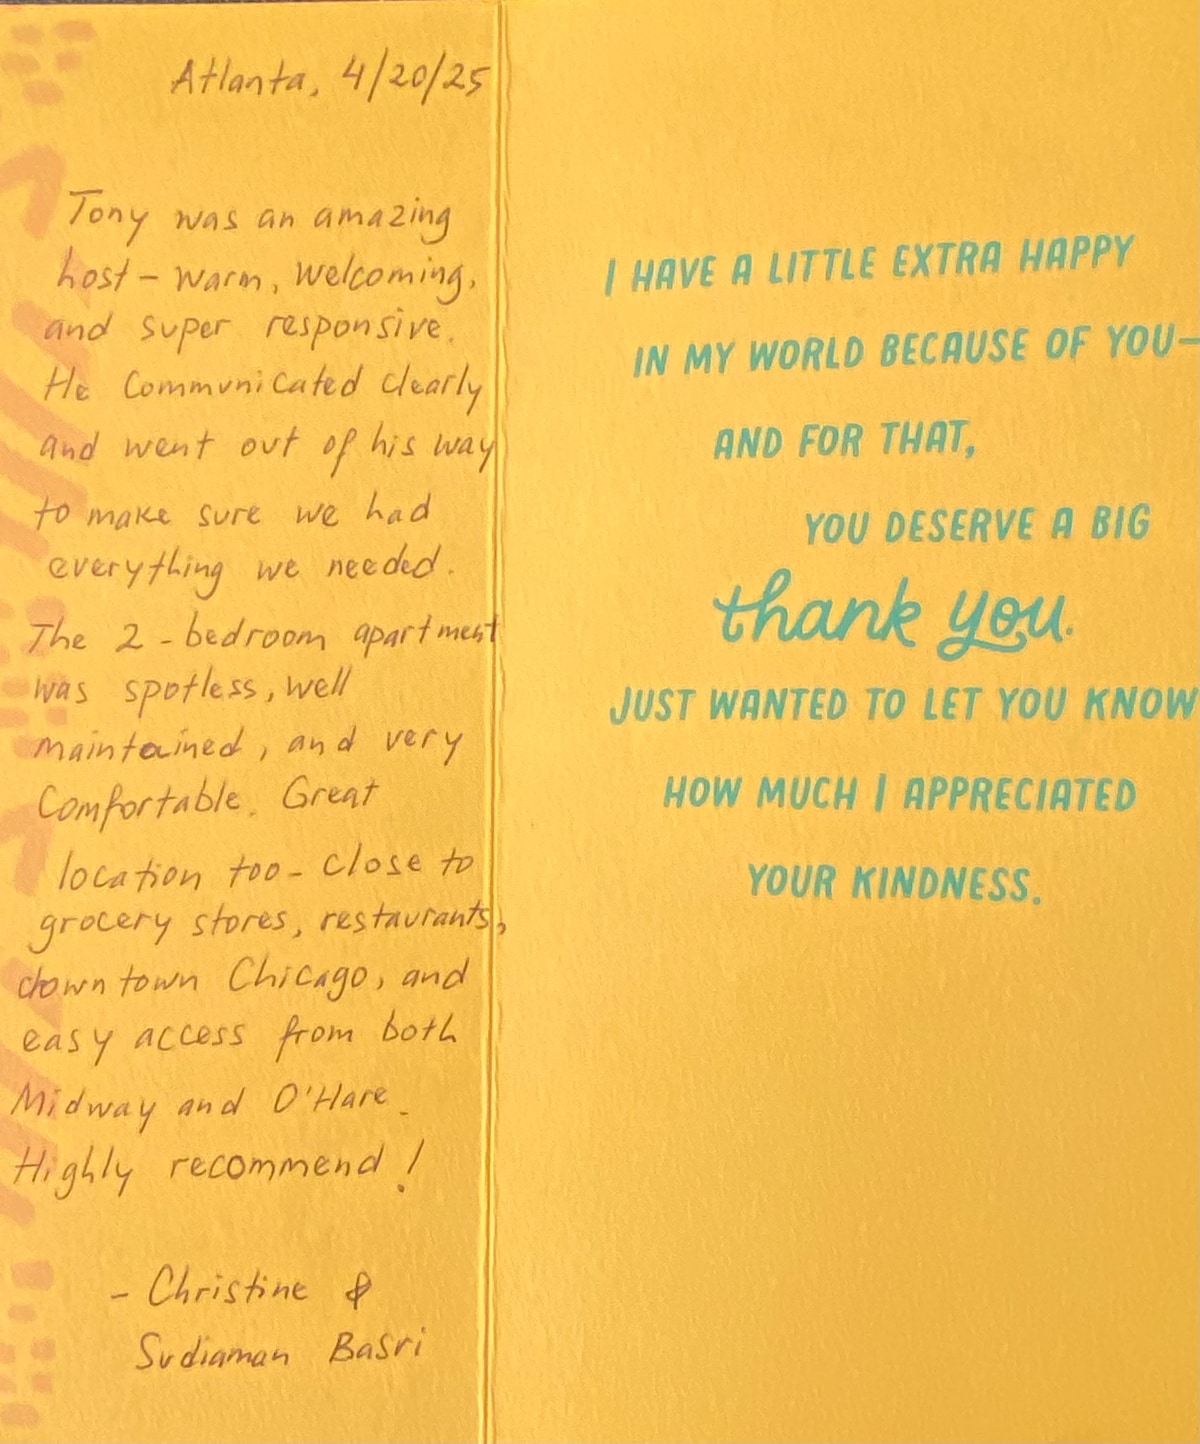 Atlanta, 4/20/25
Tony was an amazing
host – warm, welcoming,
and super responsive.
He Communicated clearly
and went out of his way
to make sure we had
everything we needed.
The 2 - bedroom apartment
was spotless, well
maintained, and very
Comfortable. Great
location too - Close to
grocery stores, restaurants,
downtown Chicago, and
easy access from both
Midway and O'Hare.
Highly recommend!
- Christine &
Sudiaman Basri
I HAVE A LITTLE EXTRA HAPPY
IN MY WORLD BECAUSE OF YOU—
AND FOR THAT,
YOU DESERVE A BIG
thank you.
JUST WANTED TO LET YOU KNOW
HOW MUCH I APPRECIATED
YOUR KINDNESS.